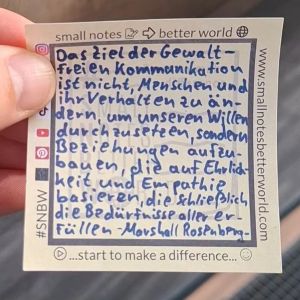 small notes better world
Das Ziel der Gewalt-
freien Kommunikatio
ist nicht, Menschen und
ihr Verhalten zu än-
dern, um unseren Willen
durchzusetzen, sondern
Beziehungen aufzu-
bauen, die auf Ehrlich-
keit und Empathie
basieren, die schließlich
die Bedürfnisse aller er-
füllen -Marshall Rosenberg-
...start to make a difference...
#SNBW
www.smallnotesbetterworld.com